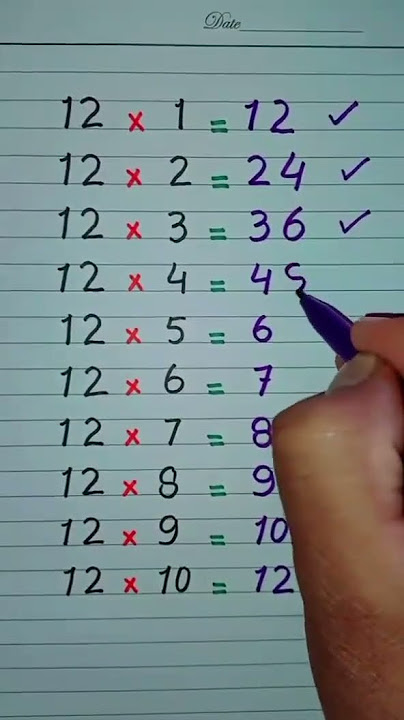 Date
12 × 1 = 12 ✓
12 × 2 = 24 ✓
12 × 3 = 36 ✓
12 × 4 = 4
12 × 5 = 6
12 × 6 = 7
12 × 7 = 8
12 × 8 = 9
12 × 9 = 10
12 × 10 = 12